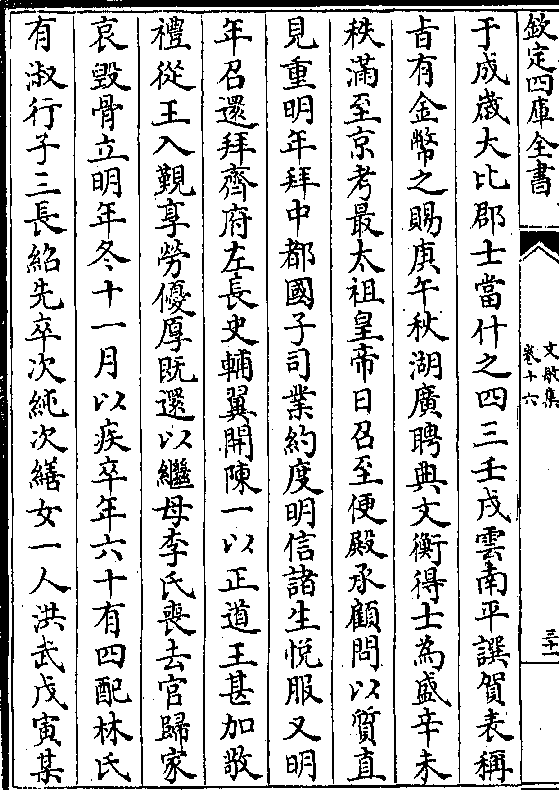 欽定四庫全書
文敏集
卷十六
三十一
于成歲大比郡士當什之四三壬戌雲南平譔賀表稱
㫖有金幣之賜庚午秋湖廣聘典文衡得士為盛辛未
秩滿至京考最太祖皇帝日召至便殿承顧問以質直
見重明年拜中都國子司業約度明信諸生悅服又明
年召還拜齊府左長史輔翼開陳一以正道王甚加敬
禮從王入覲享勞優厚既還以繼母李氏喪去官歸家
哀毀骨立明年冬十一月以疾卒年六十有四配林氏
有淑行子三長紹先卒次純次繕女一人洪武戊寅某